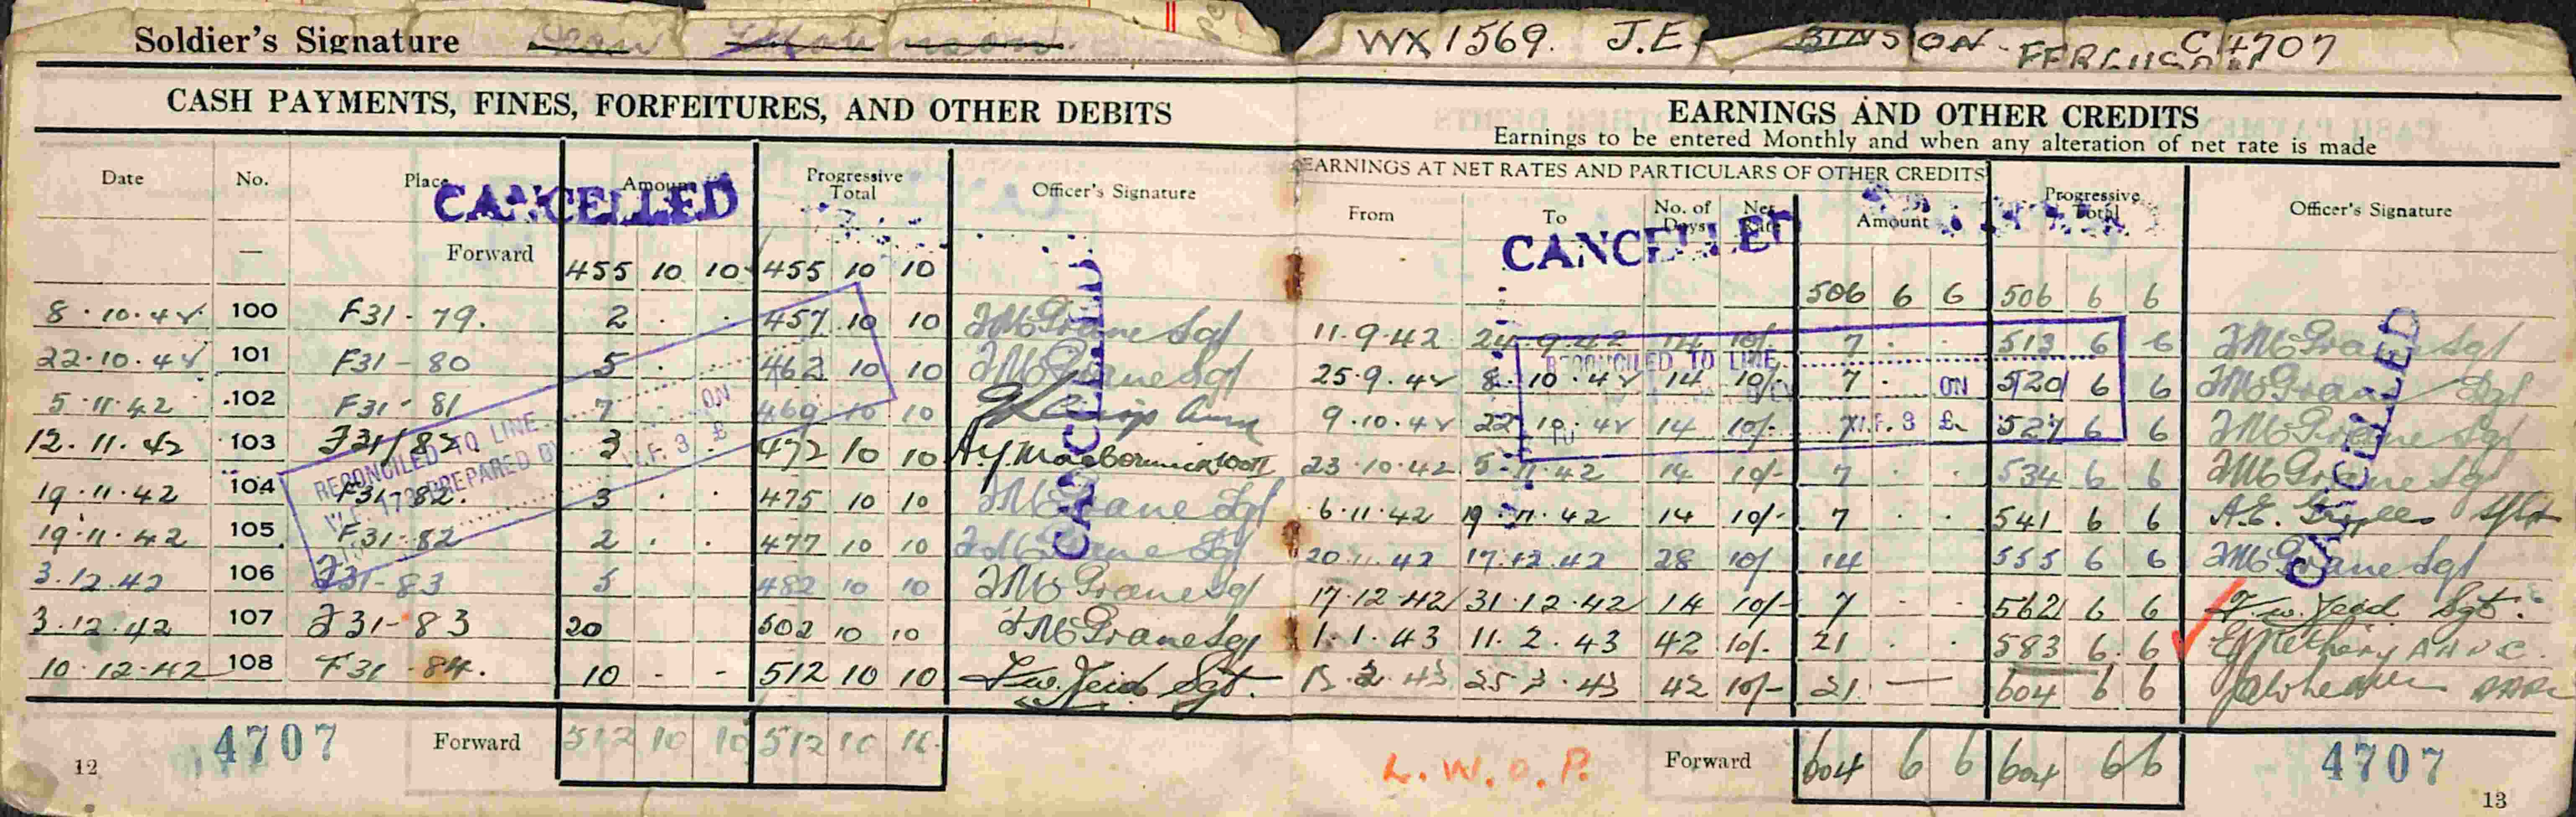 Soldier's Signature
WX1569. J.E. BINSON - FERGUSON C4707
CASH PAYMENTS, FINES, FORFEITURES, AND OTHER DEBITS
Date No. Place Amount Progressive Total Officer's Signature
CANCELLED
— Forward 455 10 10 455 10 10
8.10.42 100 F31-79. 2 . . 457 10 10 J McGrane Sgt
22.10.42 101 F31-80 5 . . 462 10 10 J McGrane Sgt
5.11.42 102 F31-81 7 469 10 10
12.11.42 103 F31/82 3 . 472 10 10
19.11.42 104 F31-82. 3 . . 475 10 10 J McGrane Sgt
19.11.42 105 F31-82 2 . . 477 10 10 J McGrane Sgt
3.12.42 106 F31-83 5 482 10 10 J McGrane Sgt
3.12.42 107 F31-83 20 502 10 10 J McGrane Sgt
10.12.42 108 F31-84. 10 - - 512 10 10 Sgt.
RECONCILED TO LINE ON
PREPARED BY W.F. 3 £
CANCELLED
4707 Forward 512 10 10 512 10 10
12
EARNINGS AND OTHER CREDITS
Earnings to be entered Monthly and when any alteration of net rate is made
EARNINGS AT NET RATES AND PARTICULARS OF OTHER CREDITS
From To No. of Days Net Rate Amount Progressive Total Officer's Signature
CANCELLED
506 6 6 506 6 6
11.9.42 24.9.42 14 10/- 7 . . 513 6 6 J McGrane Sgt
25.9.42 8.10.42 14 10/- 7 . 520 6 6 J McGrane Sgt
9.10.42 22.10.42 14 10/- 7 527 6 6 J McGrane Sgt
23.10.42 5.11.42 14 10/- 7 . . 534 6 6 J McGrane Sgt
6.11.42 19.11.42 14 10/- 7 . . 541 6 6 A.E.
20.11.42 17.12.42 28 10/- 14 555 6 6 J McGrane Sgt
17.12.42 31.12.42 14 10/- 7 - - 562 6 6 Sgt.
1.1.43 11.2.43 42 10/- 21 . . 583 6 6
12.2.43 25.3.43 42 10/- 21 — 604 6 6
RECONCILED TO LINE
ON
W.F. 3 £
CANCELLED
L.W.O.P. Forward 604 6 6 604 6 6 4707
13